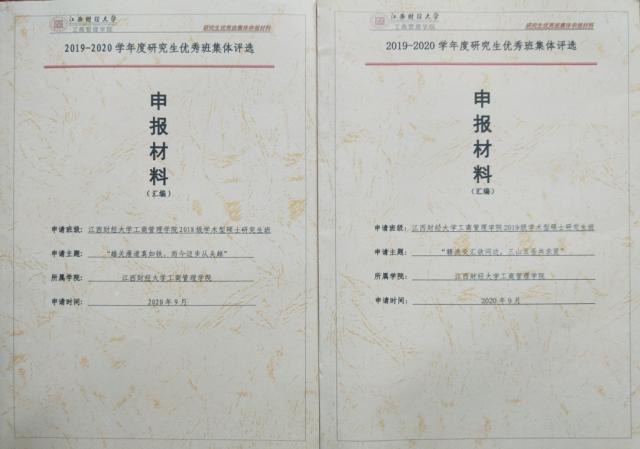 江西财经大学
工商管理学院
研究生优秀班集体申报材料
2019-2020 学年度研究生优秀班集体评选
申
报
材
料
（汇编）
申请班级: 江西财经大学工商管理学院2018级学术型硕士研究生班
申请主题: “雄关漫道真如铁，而今迈步从头越”
所属学院: 江西财经大学工商管理学院
申请时间: 2020年9月
江西财经大学
工商管理学院
研究生优秀班集体申报材料
2019-2020 学年度研究生优秀班集体评选
申
报
材
料
（汇编）
申请班级: 江西财经大学工商管理学院2019级学术型硕士研究生班
申请主题:
所属学院: 江西财经大学工商管理学院
申请时间: 2020年9月